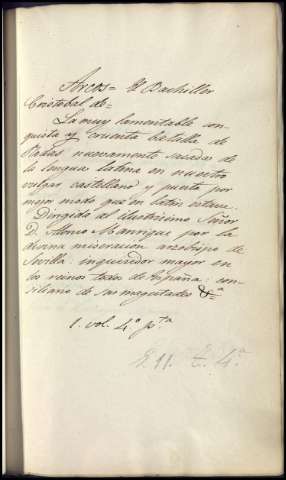 Arcos = El Bachiller
Cristobal de =
La muy lamentable con-
quista y cruenta batalla de
Rodas nuevamente sacada de
la lengua latina en nuestro
vulgar castellano y puesta por
mejor modo que en latin estava.
Dirigida al ilustrisimo Señor
D. Alonso Manrique por la
divina miseracion arzobispo de
Sevilla: inquisidor mayor en
los reinos todos de España: con-
siliario de sus magestades &ª
1. vol. 4º pta
E. 11. t. 4º